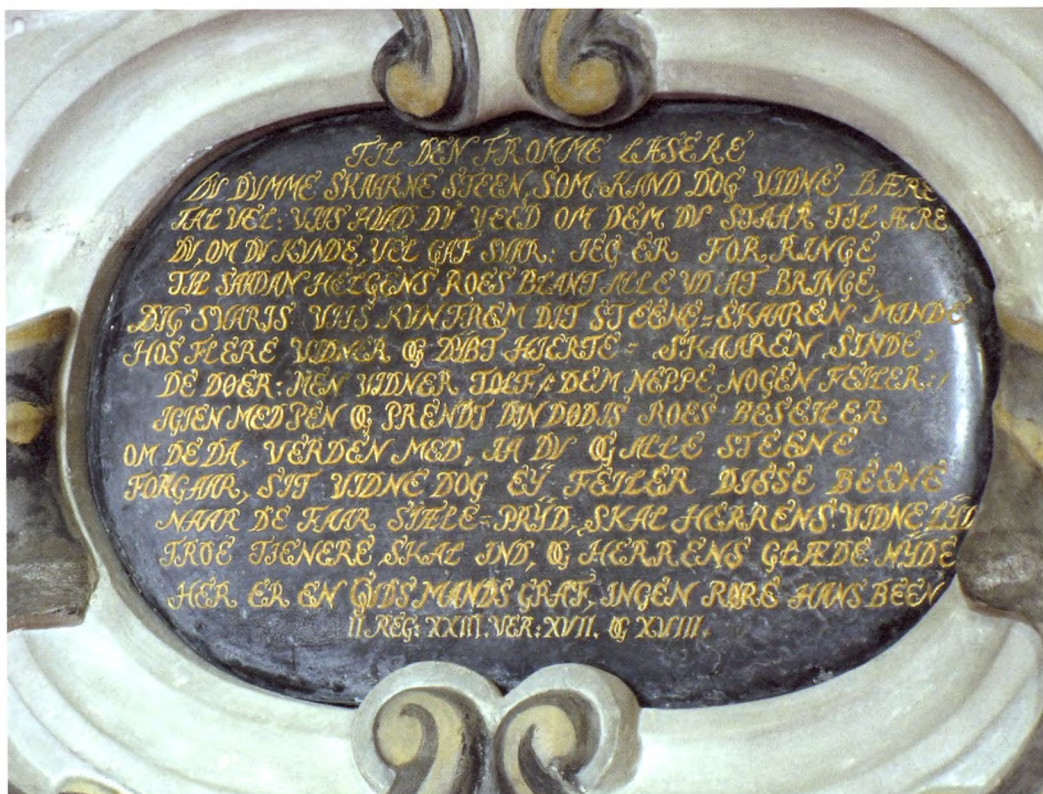 TIL DEN FROMME LÆSERE
DU DUMME SKAARNE STEEN, SOM KAND DOG VIDNE BÆRE
TAL VEL: VIIS HVAD DU VEED OM DEM DU STAAR TIL ÆRE
DU, OM DU KUNDE, VEL GAF SVAR: IEG ER FOR RINGE
TIL SAADAN HELGENS ROES BLANT ALLE UD AT BRINGE,
DIG SVARIS VIIS KUN FREM DIT STEENE=SKAAREN MINDE
HOS FLERE VIDNER OG DYBT HIERTE=SKAAREN SINDE,
DE DØER: MEN VIDNER TOLF /: DEM NEPPE NOGEN FEILER :/
IGIEN MED PEN OG PRENDT DIN DØDIS ROES BESEILER
OM DE DA, VERDEN MED, IA DU OG ALLE STEENE
FORGAAR, SIT VIDNE DOG EŸ FEILER DISSE BEENE
NAAR DE FAAR SIÆLE=PRŸD, SKAL HERRENS VIDNE LŸD
TROE TIENERE SKAL IND, OG HERRENS GLÆDE NYDE
HER ER EN GUDS MANDS GRAF, INGEN RØRE HANS BEEN
II REG: XXIII. VER: XVII. OG XVIII.